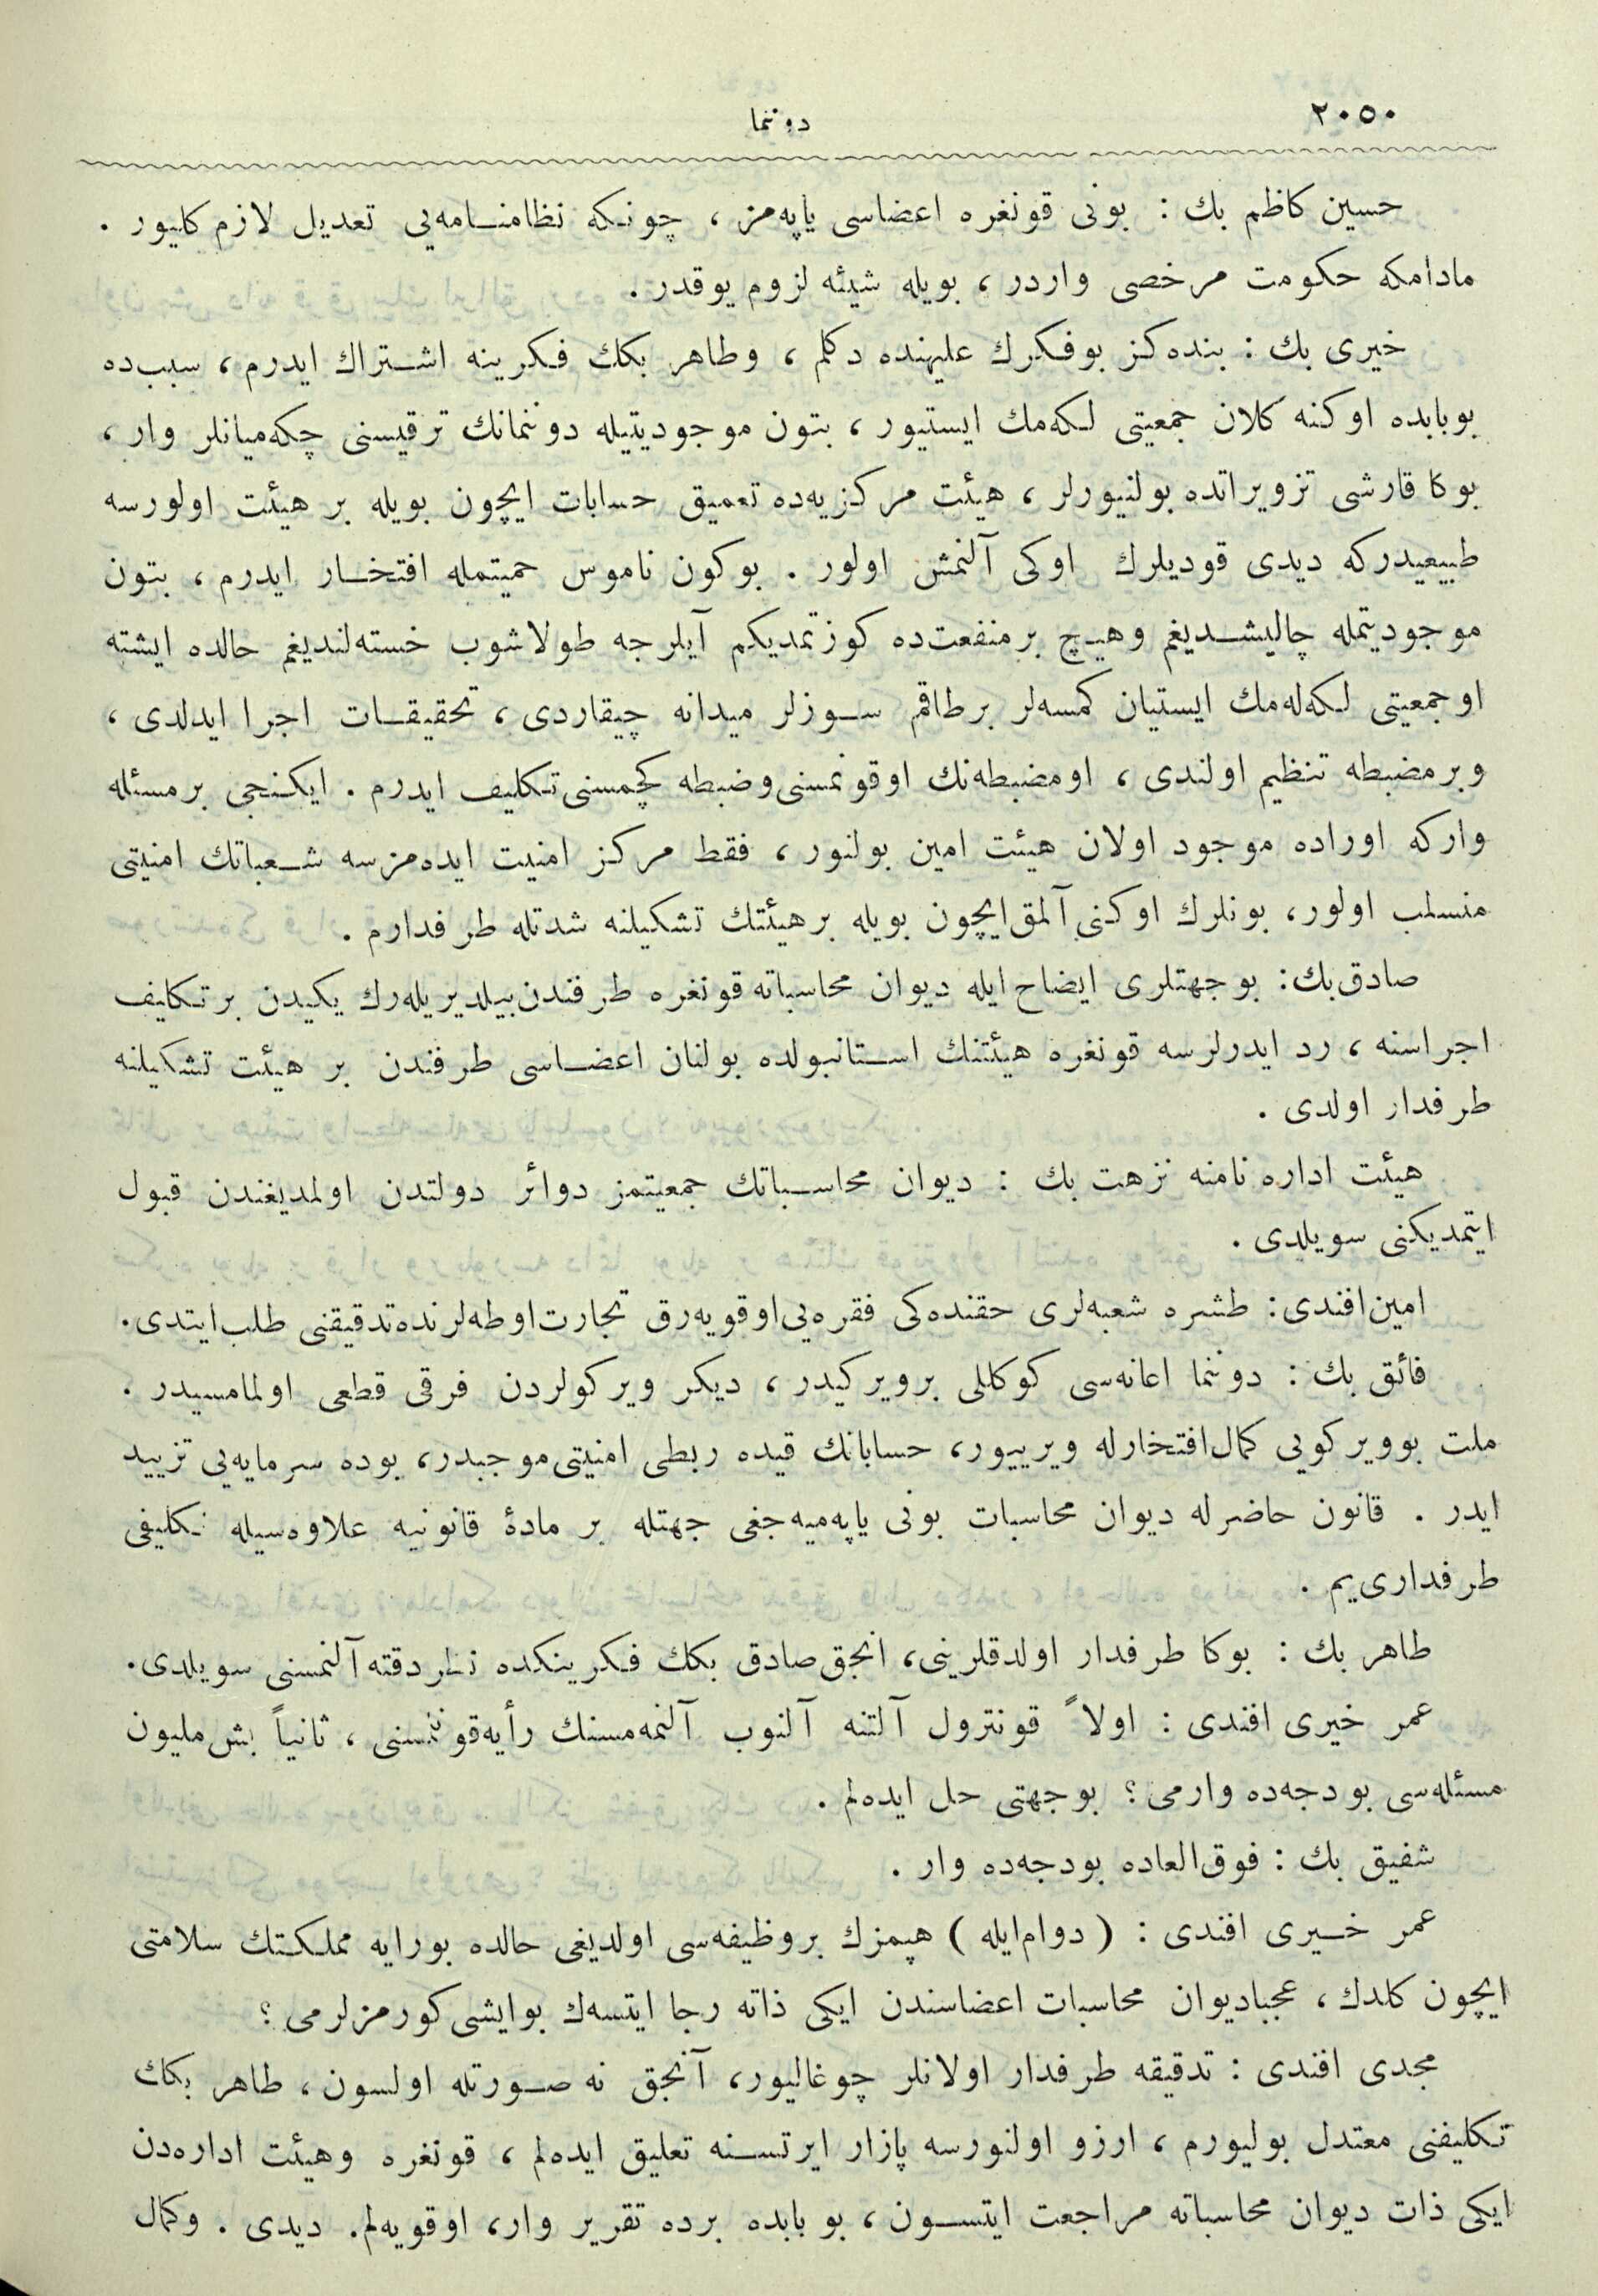 ٢٠٥٠
دوننما
حسين كاظم بك : بونى قونغره اعضاسى ياپه‌مز ، چونكه نظامنامه‌يى تعديل لازم كليور .
مادامكه حكومت مرخصى واردر ، بويله شيئه لزوم يوقدر .
خيرى بك : بنده‌كز بوفكرك عليهنده دكلم ، وطاهر بكك فكرينه اشتراك ايدرم ، سبب‌ده
بوبابده اوكنه كلان جمعيتى لكه‌مك ايستيور ، بتون موجوديتيله دوننمانك ترقيسنى چكه‌ميانلر وار ،
بوكا قارشى تزويراتده بولنيورلر ، هيئت مركزيه‌ده تعميق حسابات ايچون بويله بر هيئت اولورسه
طبيعيدركه ديدى قوديلرك اوكى آلنمش اولور . بوكون ناموس حميتمله افتخار ايدرم ، بتون
موجوديتمله چاليشديغم وهيچ برمنفعت‌ده كوزتمديكم آيلرجه طولاشوب خسته‌لنديغم حالده ايشته
اوجمعيتى لكه‌له‌مك ايستيان كمسه‌لر برطاقم سوزلر ميدانه چيقاردى ، تحقيقات اجرا ايدلدى ،
وبرمضبطه تنظيم اولندى ، اومضبطه‌نك اوقونمسنى وضبطه كچمسنى تكليف ايدرم . ايكنجى برمسئله
واركه اوراده موجود اولان هيئت امين بولنور ، فقط مركز امنيت ايده‌مزسه شعباتك امنيتى
منسلب اولور ، بونلرك اوكنى آلمق ايچون بويله برهيئتك تشكيلنه شدتله طرفدارم .
صادق بك : بوجهتلرى ايضاح ايله ديوان محاسباته قونغره طرفندن بيلديريله‌رك يكيدن برتكليف
اجراسنه ، رد ايدرلرسه قونغره هيئتنك استانبولده بولنان اعضاسى طرفندن بر هيئت تشكيلنه
طرفدار اولدى .
هيئت اداره نامنه نزهت بك : ديوان محاسباتك جمعيتمز دوائر دولتدن اولمديغندن قبول
ايتمديكنى سويلدى .
امين افندى : طشره شعبه‌لرى حقنده‌كى فقره‌يى اوقويه‌رق تجارت اوطه‌لرنده تدقيقنى طلب ايتدى .
فائق بك : دوننما اعانه‌سى كوكللى برويركيدر ، ديكر ويركولردن فرقى قطعى اولمامسيدر .
ملت بوويركويى كمال افتخارله ويرييور ، حسابانك قيده ربطى امنيتى موجبدر ، بوده سرمايه‌يى تزييد
ايدر . قانون حاضرله ديوان محاسبات بونى ياپه‌ميه‌جغى جهتله بر مادۀ قانونيه علاوه‌سيله تكليفى
طرفدارى‌يم .
طاهر بك : بوكا طرفدار اولدقلرينى ، انجق صادق بكك فكرينكده نظر دقته آلنمسنى سويلدى .
عمر خيرى افندى : اولاً قونترول آلتنه آلنوب آلنمه‌مسنك رأيه قونمسنى ، ثانياً بش مليون
مسئله‌سى بودجه‌ده وارمى ؟ بوجهتى حل ايده‌لم .
شفيق بك : فوق‌العاده بودجه‌ده وار .
عمر خيرى افندى : ( دوام‌ايله ) هپمزك بروظيفه‌سى اولديغى حالده بورايه مملكتك سلامتى
ايچون كلدك ، عجبا ديوان محاسبات اعضاسندن ايكى ذاته رجا ايتسه‌ك بوايشى كورمزلرمى ؟
مجدى افندى : تدقيقه طرفدار اولانلر چوغاليور ، آنجق نه صورتله اولسون ، طاهر بكك
تكليفنى معتدل بوليورم ، ارزو اولنورسه پازار ايرتسنه تعليق ايده‌لم ، قونغره وهيئت اداره‌دن
ايكى ذات ديوان محاسباته مراجعت ايتسون ، بو بابده برده تقرير وار ، اوقويه‌لم . ديدى . وكمال